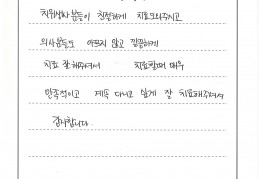 치위생사 분들이 친절하게 치료도와주시고
의사분들도 아프지 않고 꼼꼼하게
치료 잘 해주셔서 치료할때 매우
만족적이고 계속 다니고 싶게 잘 치료해주셔서
감사합니다.